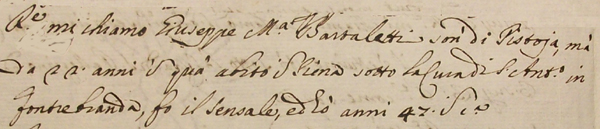 R.e mi chiamo Giuseppe M.a Bartaletti son' di Pistoja, mà
da 22. anni in quà abito Siena sotto la Cura di S. Ant.o in
fontebranda, fo il sensale, ed hò anni 47. S c.a